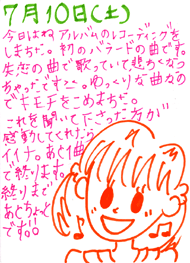 7月10日(土)
今日はね アルバムのレコーディングを
しまちた。初のバラードの曲です。
失恋の曲で歌っていて悲ちくなっ
ちゃったですご。ゆっくりな曲なの
で キモチをこめまちた。
これを聞いて下さった方が
感動してくれたら
イイナ。あと1曲
で終ります。
終りまで
あとちょっと
です!!